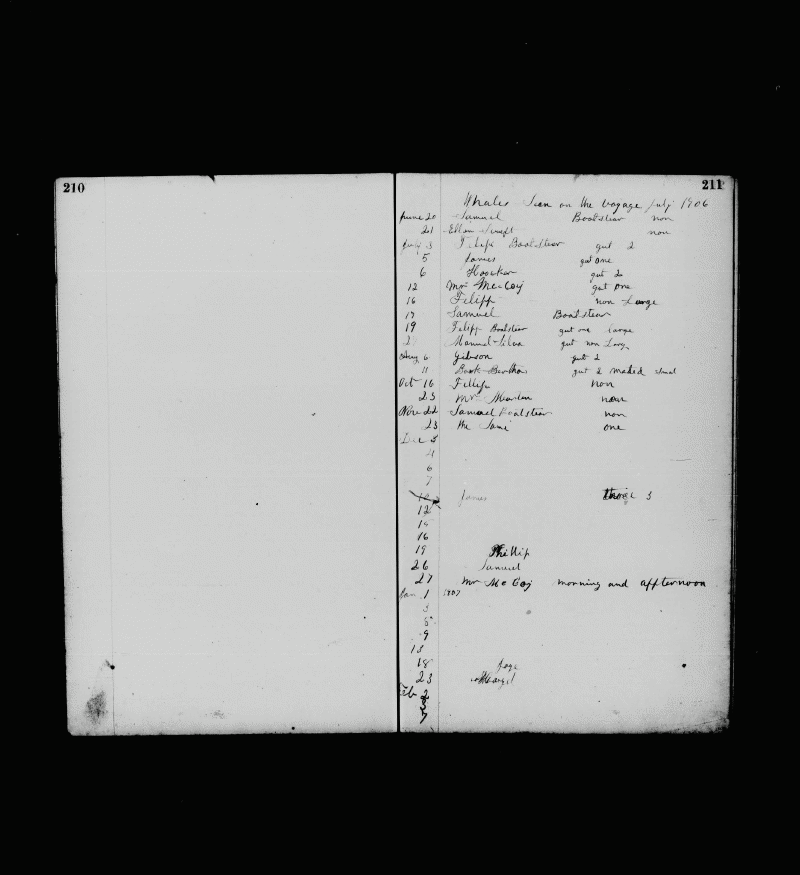 210
211
Whales Seen on the Voyage July 1906
June 20 Samuel Boatstear non
21 non
July 3 Filipe Boatstear gut 2
5 James gut one
6 Hoocker gut 2
12 Mr McCoy gut one
16 Filipp non Large
17 Samuel Boatstear
19 Filipp Boatstear gut one large
2 Manuel Silva gut non Larg
Aug 6 Gibson gut 2
11 gut 2
Oct 16 Fillip non
23 Mr non
Nove 22 Samuel Boatstear non
23 the Same one
Dec 3
4
6
7
James 3
12
16
19 Phillip
26 Samuel
27 Mr McCoy morning and affternoon
Jan 1 1907
3
5
9
13
18
23
Feb 2